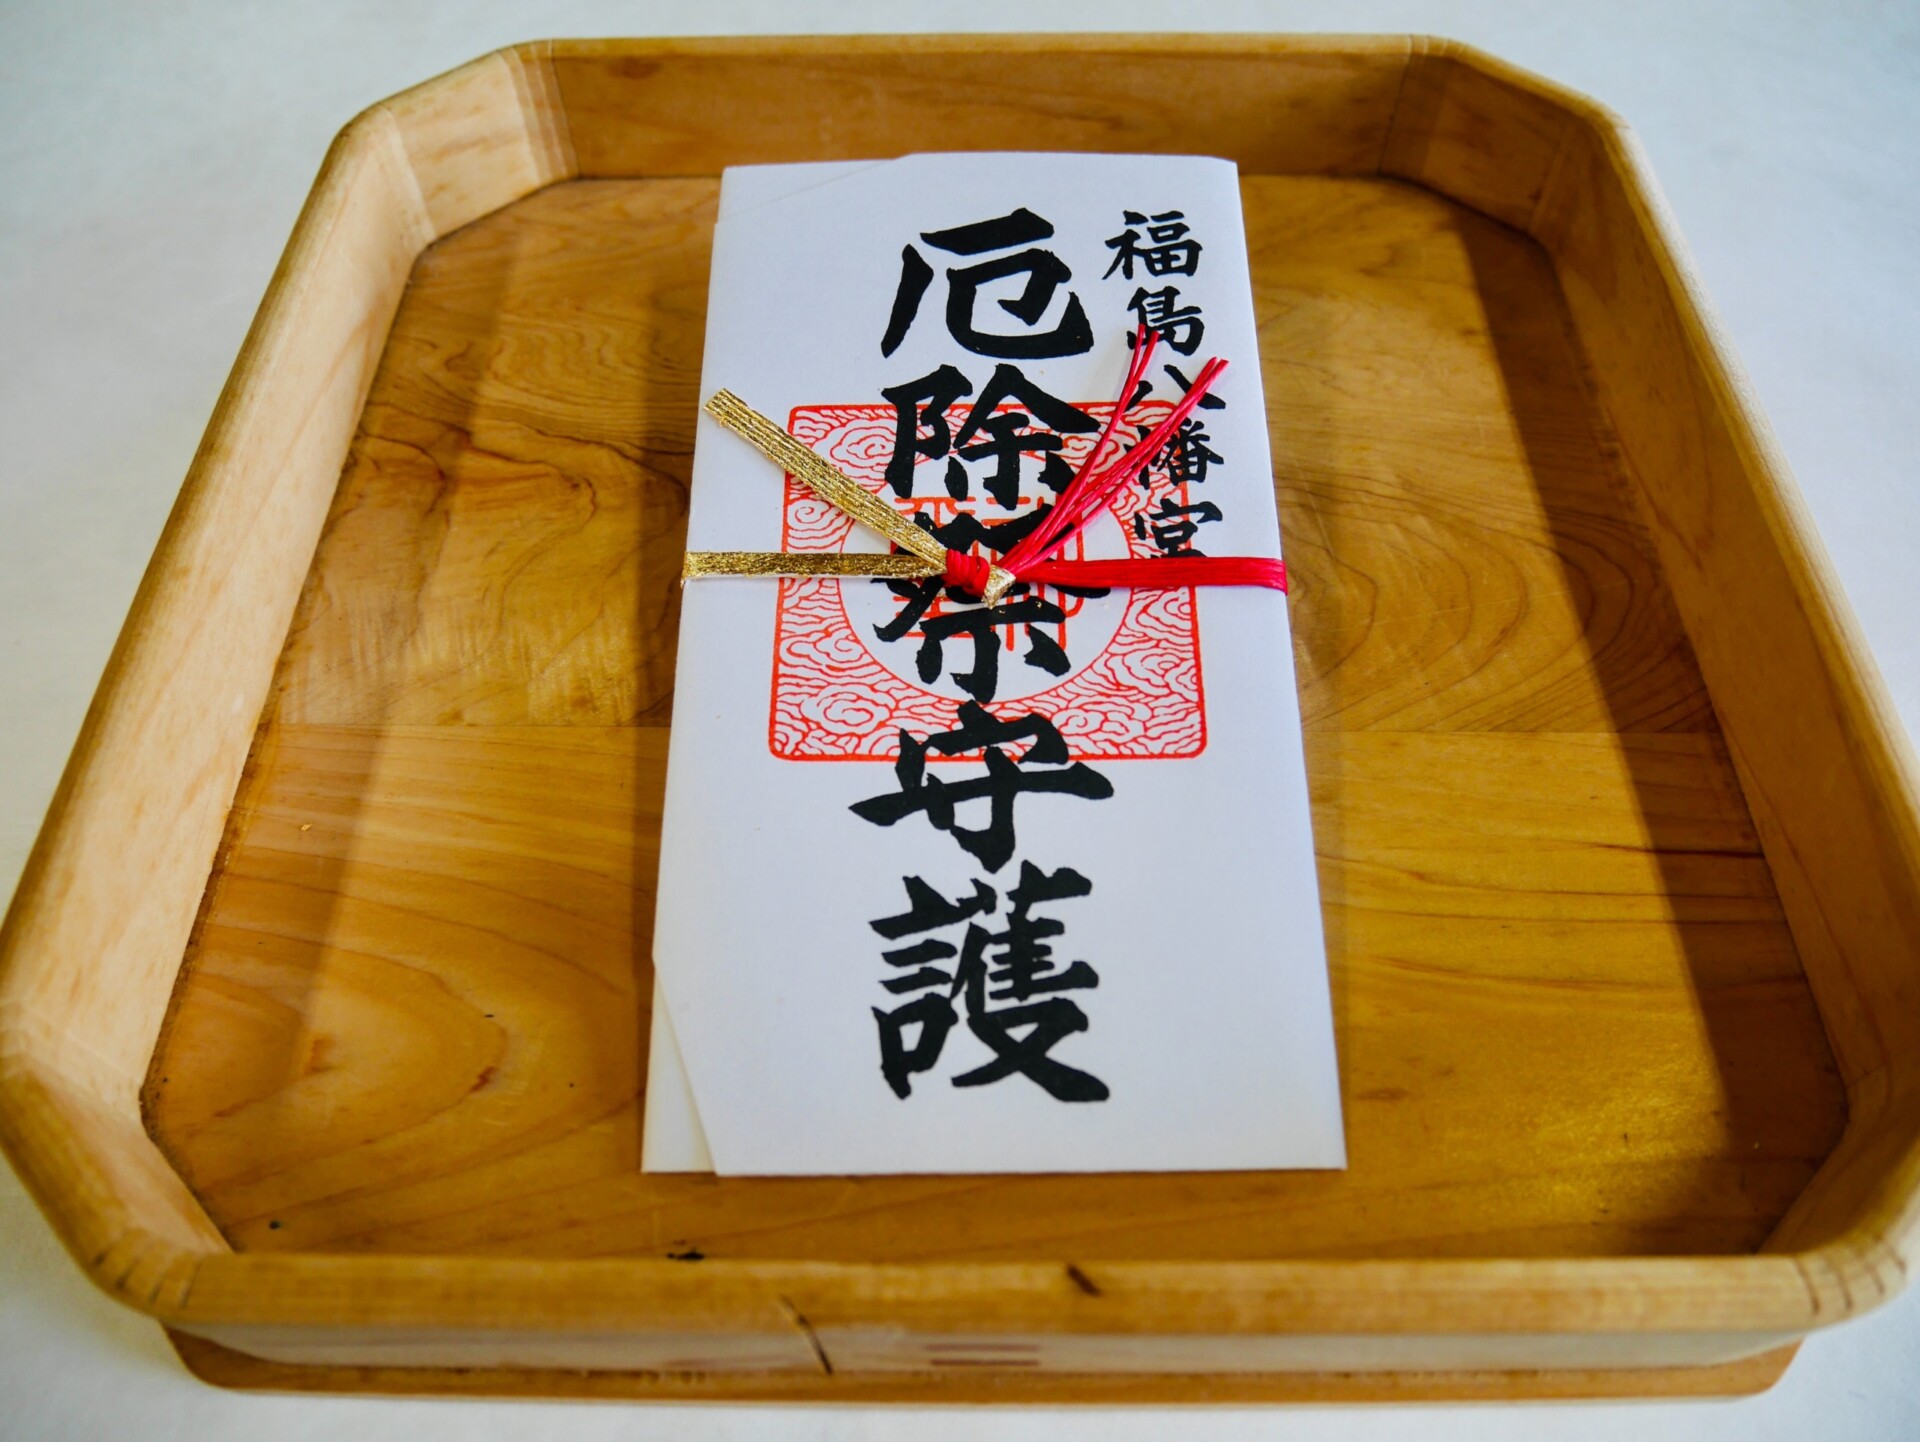 福島八幡宮
厄除祭守護